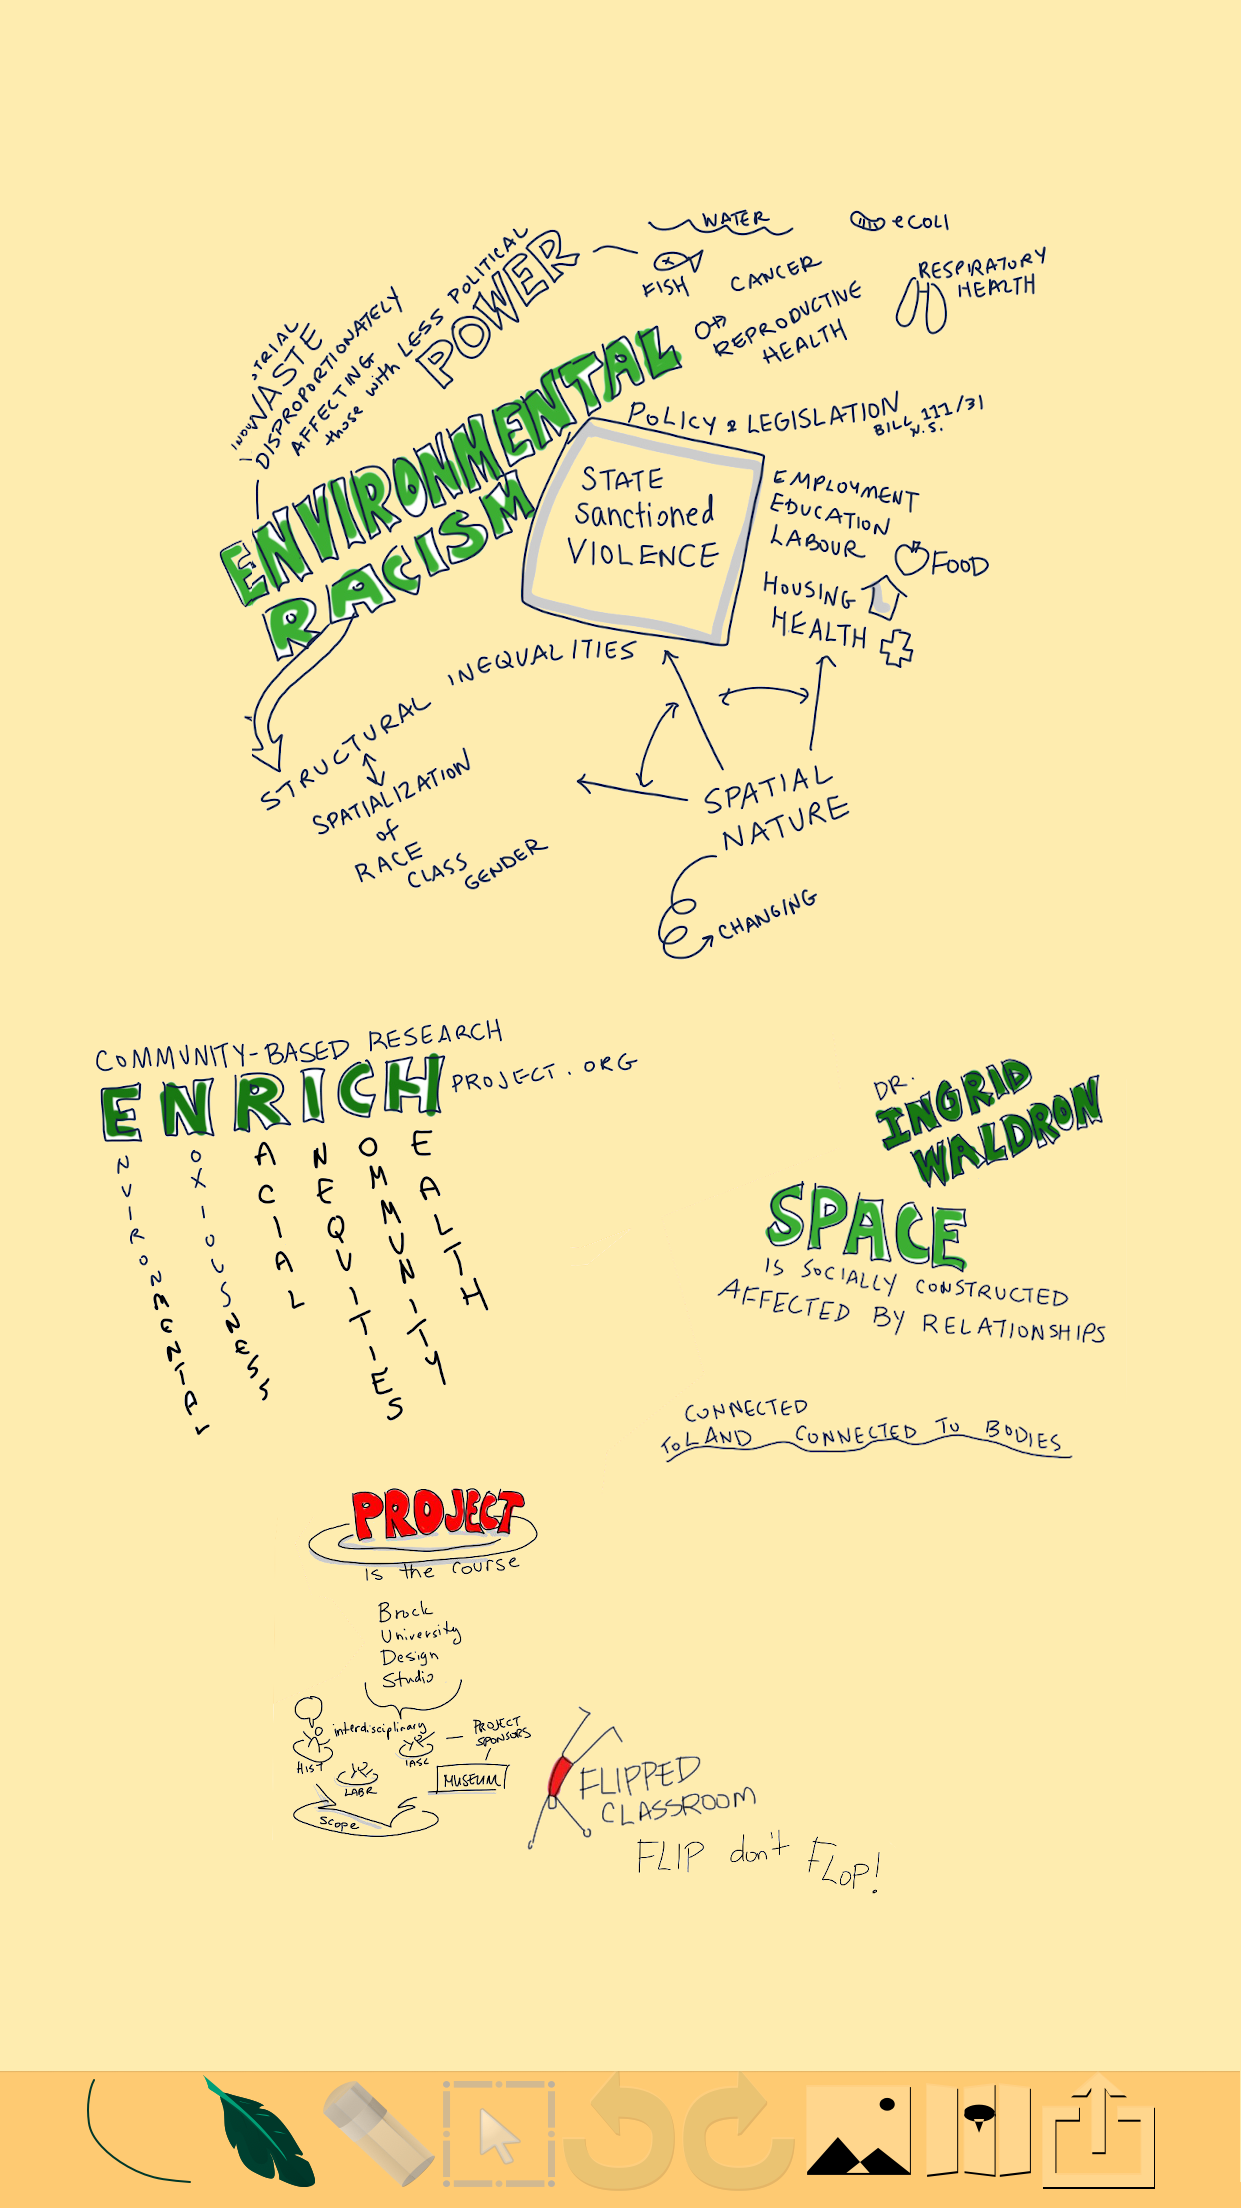 WATER
eCOLI
FISH
CANCER
RESPIRATORY
HEALTH
REPRODUCTIVE
HEALTH
WASTE
DISPROPORTIONATELY
AFFECTING
those with LESS POLITICAL
POWER
ENVIRONMENTAL
RACISM
POLICY & LEGISLATION
BILL 111/31
N.S.
STATE
Sanctioned
VIOLENCE
EMPLOYMENT
EDUCATION
LABOUR
FOOD
HOUSING
HEALTH
STRUCTURAL INEQUALITIES
SPATIALIZATION
of
RACE
CLASS
GENDER
SPATIAL
NATURE
CHANGING
COMMUNITY-BASED RESEARCH
ENRICH PROJECT.ORG
ENVIRONMENTAL
NOXIOUSNESS
RACIAL
INEQUITIES
COMMUNITY
HEALTH
DR.
INGRID
WALDRON
SPACE
IS SOCIALLY CONSTRUCTED
AFFECTED BY RELATIONSHIPS
CONNECTED
TO LAND CONNECTED TO BODIES
PROJECT
is the course
Brock
University
Design
Studio
interdisciplinary
PROJECT
SPONSORS
HIST
IASC
LABR
MUSEUM
scope
FLIPPED
CLASSROOM
FLIP don't FLOP!